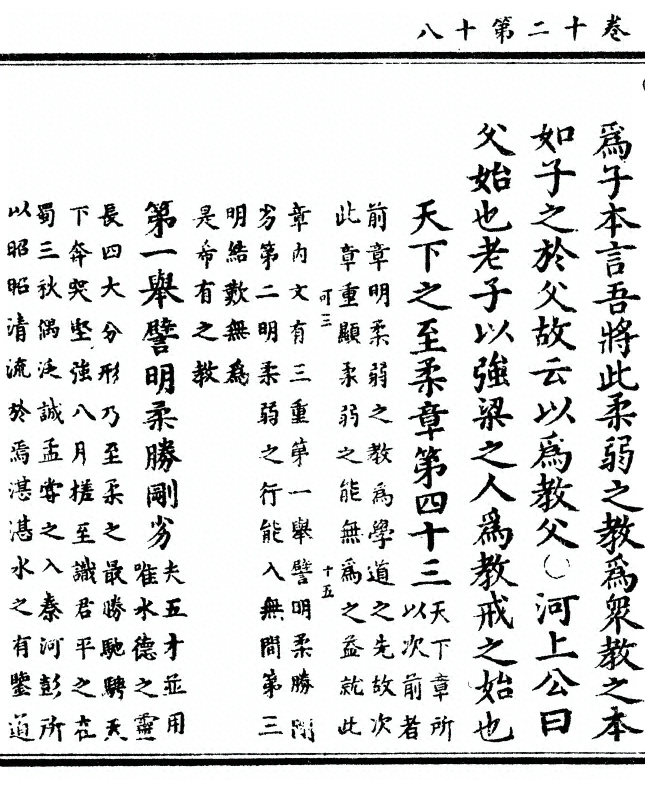 卷十二第十八
爲子本言吾將此柔弱之教爲衆教之本
如子之於父故云以爲教父〇河上公曰
父始也老子以強梁之人爲教戒之始也
天下之至柔章第四十三
天下章所
以次前者
前章明柔弱之教爲學道之先故次
此章重顯柔弱之能無爲之益就此
可三
十五
章内文有三重第一舉譬明柔勝剛
劣第二明柔弱之行能入無間第三
明結歎無爲
是希有之教
第一舉譬明柔勝剛劣
夫五才並用
唯水德之靈
長四大分形乃至柔之最勝馳騁天
下奔突堅強八月槎至識君平之在
蜀三秋偶泛誠孟嘗之入秦河彭所
以昭昭清流於焉湛湛水之有鑒道